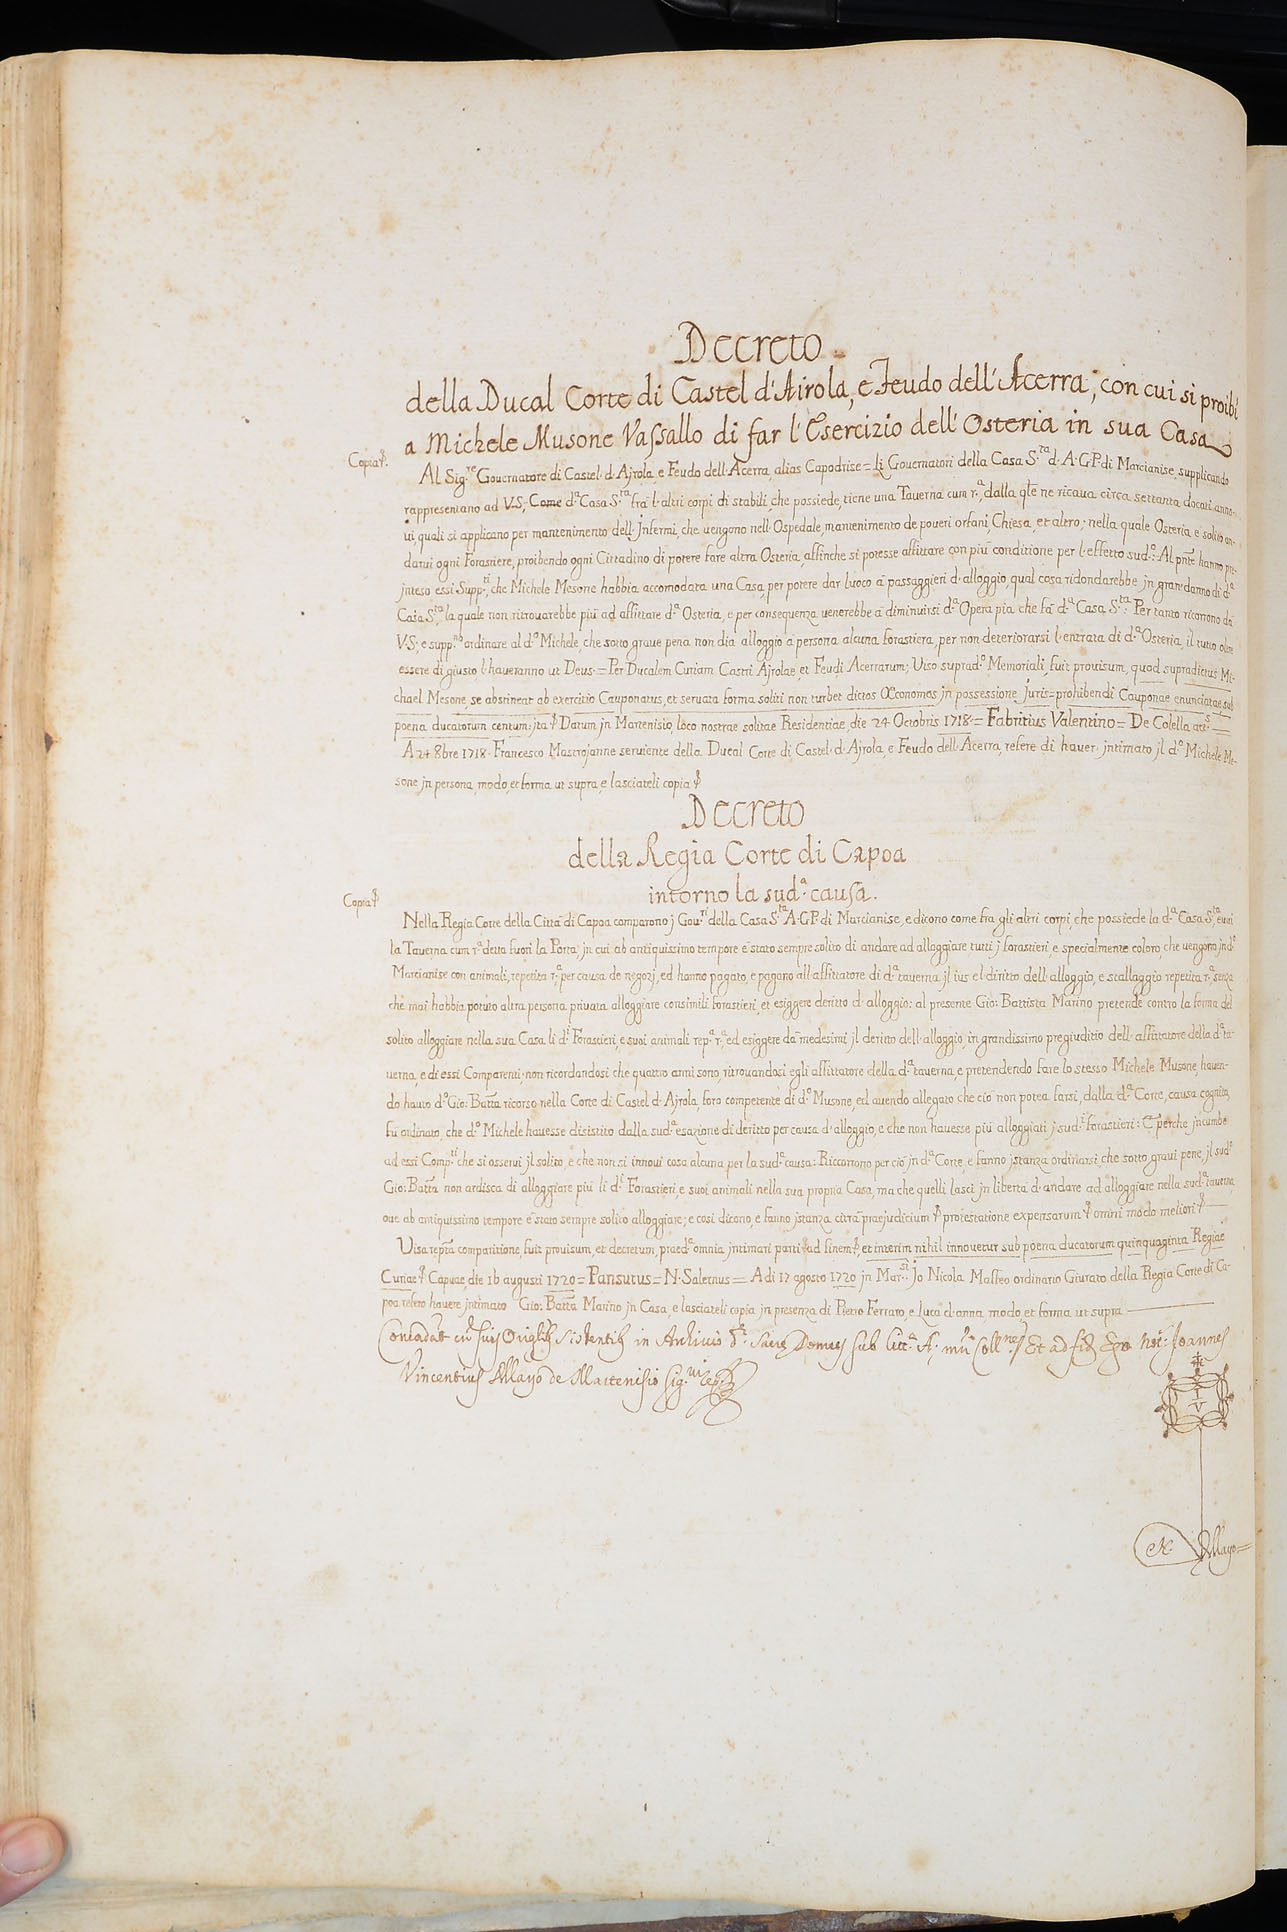 Decreto
della Ducal Corte di Castel d'Airola, e Feudo dell'Acerra, con cui si proibì
a Michele Musone Vassallo di far l'Esercizio dell'Osteria in sua Casa
Copia
Al Sig.re Governatore di Castel d'Ajrola e Feudo dell'Acerra, alias Capodrise = Li Governatori della Casa S.ta d'A.G.P. di Marcianise, supplicando
rappresentano ad V.S., Come d.a Casa S.ta frà l'altri corpi di stabili, che possiede, tiene una Taverna cum r.a, dalla qle ne ricava circa settanta docati anno-
ui quali si applicano per mantenimento dell'Infermi, che vengono nell'Ospedale, mantenimento de poveri orfani, Chiesa, et altro; nella quale Osteria è solito an-
darvi ogni Forastiere, proibendo ogni Cittadino di potere fare altra Osteria, affinche si potesse affittare con più conditione per l'effetto sud.o: Al pnte hanno pre-
inteso essi Supp.ti, che Michele Mesone habbia accomodata una Casa, per potere dar luoco à passaggieri d'alloggio, qual cosa ridondarebbe in gran danno di d.a
Casa S.ta, la quale non ritrovarebbe più ad affittare d.a Osteria, e per consequenza venerebbe à diminuirsi d.a Opera pia, che fà d.a Casa S.ta: Per tanto ricorrono da
V.S., e supp.no ordinare al d.o Michele, che sotto grave pena non dia alloggio à persona alcuna forastiera, per non deteriorarsi l'entrata di d.a Osteria, il tutto oltre
essere di giusto l'haveranno ut Deus = Per Ducalem Curiam Castri Ajrolae, et Feudi Acerrarum; Viso suprad.o Memoriali, fuit provisum, quod supradictus Mi-
chael Mesone, se abstineat ab exercitio Cauponatus, et servata forma soliti non turbet dictos Oeconomos in possessione Juris prohibendi Cauponae enunciatae sub
poena ducatorum centum: ita Datum in Martenisio, loco nostrae solitae Residentiae, die 24 Octobris 1718 = Fabritius Valentino = De Colella act.s
A 24 8bre 1718. Francesco Mastrojanne serviente della Ducal Corte di Castel d'Ajrola, e Feudo dell'Acerra, refere di haver intimato il d.o Michele Me-
sone in persona, modo, et forma ut supra, e lasciateli copia
Decreto
della Regia Corte di Capoa
intorno la sud.a causa.
Copia
Nella Regia Corte della Città di Capoa comparono j Gov.ri della Casa S.ta A.G.P. di Marcianise, e dicono come fra gli altri corpi, che possiede la d.a Casa S.ta, evvi
la Taverna cum r.a detta fuori la Porta, in cui ab antiquissimo tempore è stato sempre solito di andare ad alloggiare tutti j forastieri, e specialmente coloro, che vengono in d.o
Marcianise con animali, repetita r.a, per causa de negozj, ed hanno pagato, e pagano all'affittatore di d.a taverna jl ius e'l diritto dell'alloggio, e stallaggio repetita r.a senza
che mai habbia potuto altra persona privata alloggiare consimili forastieri, et esiggere deritto d'alloggio: al presente Gio: Battista Marino pretende contro la forma del
solito alloggiare nella sua Casa li d.i Forastieri, e suoi animali rep.a r.a, ed esiggere dà medesimi jl deritto dell'alloggio, in grandissimo pregiuditio dell'affittatore della d.a ta-
verna, e di essi Comparenti, non ricordandosi che quattro anni sono, ritrovandosi egli affittatore della d.a taverna, e pretendendo fare lo stesso Michele Musone, haven-
do hauto d.o Gio: Batta ricorso nella Corte di Castel d'Ajrola, foro competente di d.o Musone, ed avendo allegato che ciò non potea farsi, dalla d.a Corte, causa cognita,
fù ordinato, che d.o Michele havesse disistito dalla sud.a esazione di deritto per causa d'alloggio, e che non havesse più alloggiati j sud.i forastieri: E perche incumbe
ad essi Comp.ti che si osservi jl solito, e che non si innovi cosa alcuna per la sud.a causa: Riccorrono perciò in d.a Corte, e fanno istanza ordinarsi, che sotto gravi pene, jl sud.o
Gio: Batta non ardisca di alloggiare più li d.i Forastieri, e suoi animali nella sua propria Casa, ma che quelli lasci in libertà d'andare ad alloggiare nella sud.a taverna
ove ab antiquissimo tempore è stato sempre solito alloggiare; e così dicono, e fanno istanza citrà praejudicium protestatione expensarum omni modo meliori
Visa repta comparitione, fuit provisum, et decretum, praed.a omnia intimari parti ad finem, et interim nihil innovetur sub poena ducatorum quinquaginta Regiae
Curiae Capuae, die 16 augusti 1720 = Pansutus = N. Salernus = A di 17 agosto 1720 in Mar.si Jo Nicola Maffeo ordinario Giurato della Regia Corte di Ca-
poa refero havere intimato Gio: Batta Marino in Casa, e lasciateli copia in presenza di Pietro Ferraro, e Luca d'anna, modo, et forma ut supra
Concordat cum suis Origlib. sistentib. in Archivio Sacrae Domus sub litt.a A. Et ad fid. Ego Not. Joannes
Vincentius Mayo de Martenisio sig.vi
N. Mayo